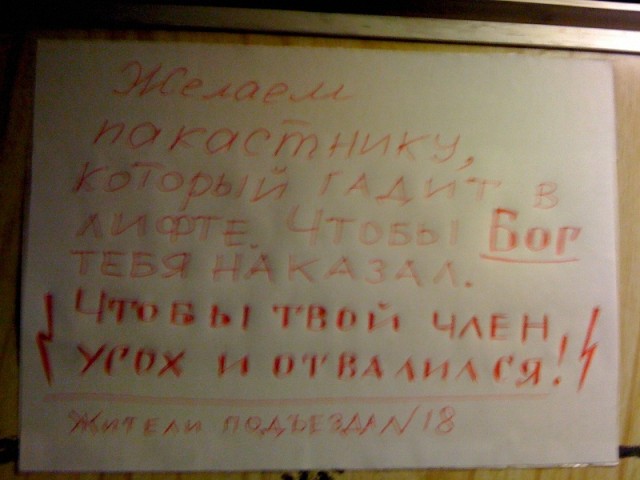 Желаем
пакастнику,
который гадит в
лифте. Чтобы Бог
тебя наказал.
Чтобы твой член
усох и отвалился!
Жители подъезда N18